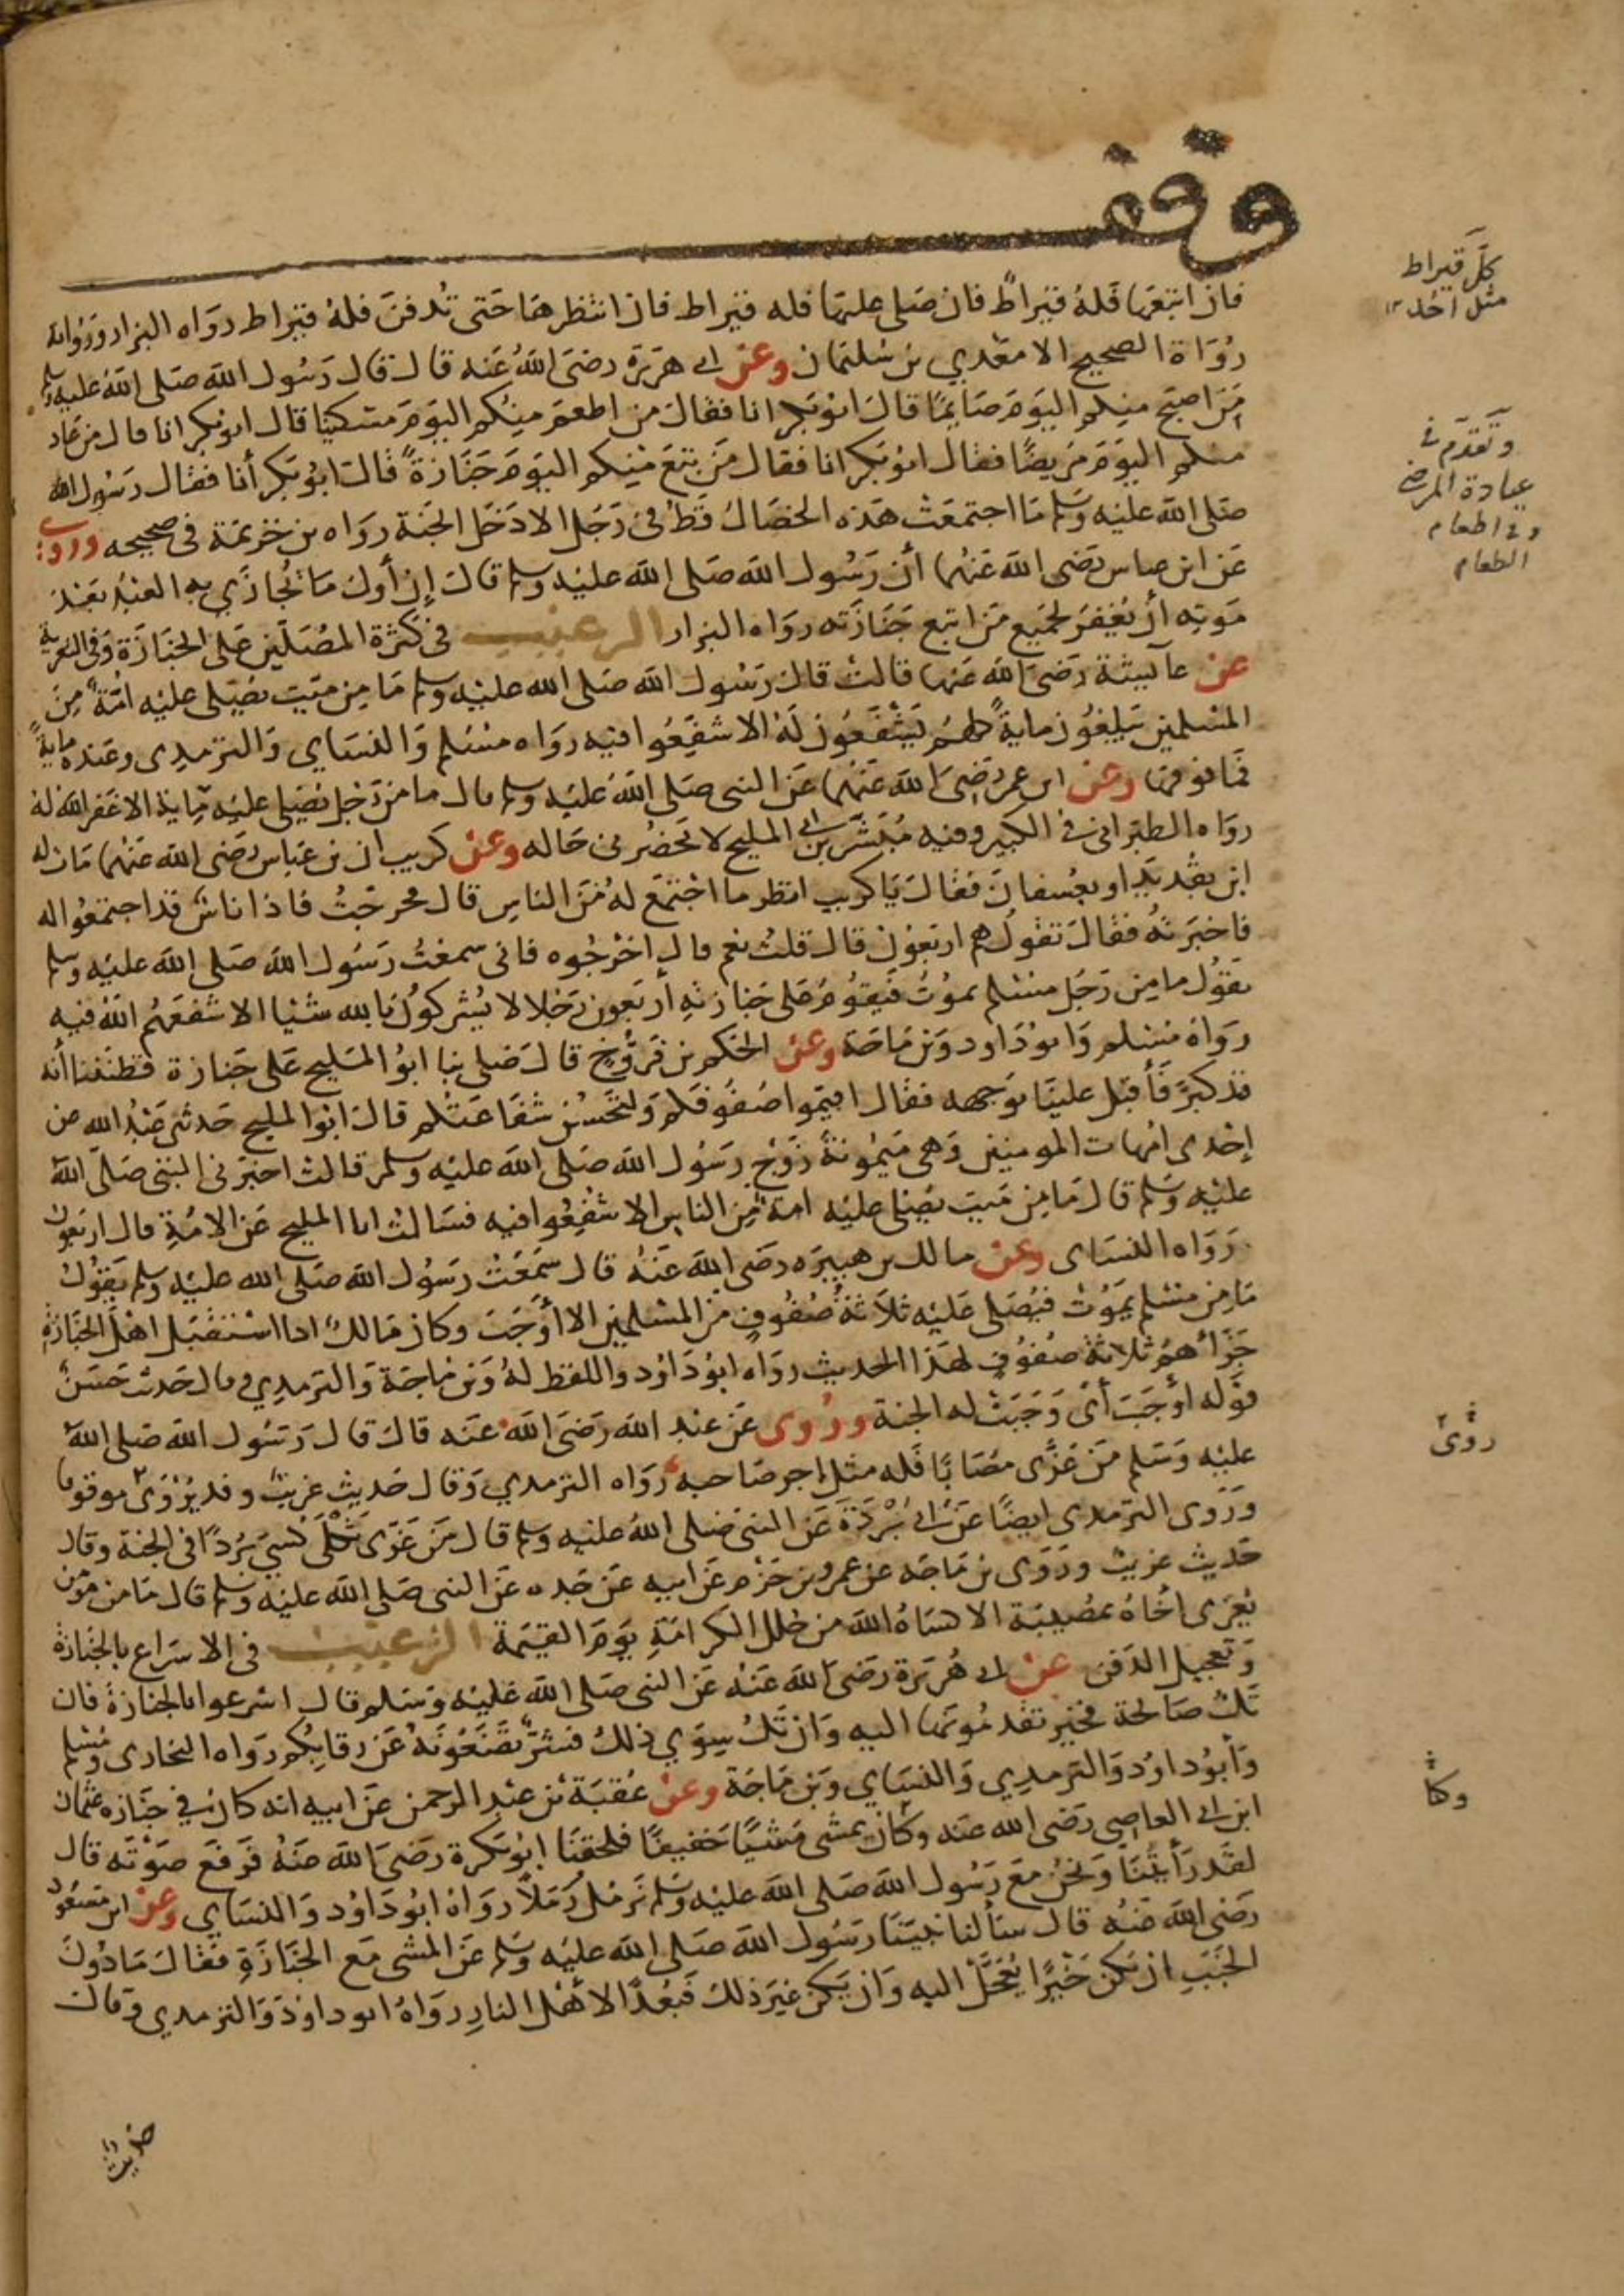 وقف
فان اتبعها فله قيراط فان صلى عليها فله قيراط فان انتظرها حتى تدفن فله قيراط رواه البزار ورواته
كل قيراط
مثل احد
رواة الصحيح الا معدي بن سليمان وعن ابي هريرة رضي الله عنه قال قال رسول الله صلى الله عليه وسلم
من اصبح منكم اليوم صايما قال ابو بكر انا فقال من اطعم منكم اليوم مسكينا قال ابو بكر انا قال من عاد
وتقدم في
عيادة المرضى
وفي اطعام
الطعام
منكم اليوم مريضا فقال ابو بكر انا فقال من تبع منكم اليوم جنازة قال ابو بكر أنا فقال رسول الله
صلى الله عليه وسلم ما اجتمعت هذه الخصال قط في رجل الا دخل الجنة رواه بن خزيمة في صحيحه وروي
عن ابن عباس رضي الله عنهما أن رسول الله صلى الله عليه وسلم قال إن أول ما يجازى به العبد بعد
موته أن يغفر لجميع من اتبع جنازته رواه البزار الترغيب في كثرة المصلين على الجنازة وفي التعزية
عن عايشة رضي الله عنها قالت قال رسول الله صلى الله عليه وسلم ما من ميت يصلى عليه امة من
المسلمين يبلغون ماية كلهم يشفعون له الا شفعوا فيه رواه مسلم والنساي والترمدي وعنده ماية
فما فوقها وعن ابن عمر رضي الله عنهما عن النبي صلى الله عليه وسلم قال ما من رجل يصلي عليه ماية الا غفر الله له
رواه الطبراني في الكبير وفيه مبشر بن ابي المليح لا يحضرني حاله وعن كريب ان بن عباس رضي الله عنهما مات له
ابن بقديد او بعسفان فقال يا كريب انظر ما اجتمع له من الناس قال فخرجت فاذا ناس قد اجتمعوا له
فاخبرته فقال تقول هم اربعون قال قلت نعم قال اخرجوه فاني سمعت رسول الله صلى الله عليه وسلم
يقول ما من رجل مسلم يموت فيقوم على جنازته أربعون رجلا لا يشركون بالله شيا الا شفعهم الله فيه
رواه مسلم وابو داود وبن ماجة وعن الحكم بن فروخ قال صلى بنا ابو المليح على جنازة فظننا أنه
قد كبر فأقبل علينا بوجهه فقال اقيموا صفوفكم ولتحسن شفاعتكم قال ابو المليح حدثني عبد الله عن
إحدى امهات المومنين وهي ميمونة زوج رسول الله صلى الله عليه وسلم قالت اخبرني النبي صلى الله
عليه وسلم قال ما من ميت يصلي عليه امة من الناس الا شفعوا فيه فسالت ابا المليح عن الامة قال اربعون
رواه النساي وعن مالك بن هبيره رضي الله عنه قال سمعت رسول الله صلى الله عليه وسلم يقول
ما من مسلم يموت فيصلى عليه ثلاثة صفوف من المسلمين الا أوجب وكان مالك اذا استقبل اهل الجنازة
جزأهم ثلاثة صفوف لهذا الحديث رواه ابو داود واللفظ له وبن ماجة والترمدي وقال حديث حسن
قوله أوجب أي وجبت له الجنة وروى عن عبد الله رضي الله عنه قال قال رسول الله صلى الله
روى
عليه وسلم من عزى مصابا فله مثل اجر صاحبه رواه الترمدي وقال حديث غريب وقد يروى موقوفا
وروى الترمدي ايضا عن ابي بردة عن النبي صلى الله عليه وسلم قال من عزى ثكلى كسي بردا في الجنة وقال
حديث غريب وروى بن ماجه عن عمرو بن حزم عن ابيه عن جده عن النبي صلى الله عليه وسلم قال ما من مومن
يعزى اخاه بمصيبة الا كساه الله من حلل الكرامة يوم القيمة الترغيب في الاسراع بالجنازة
وتعجيل الدفن عن ابي هريرة رضي الله عنه عن النبي صلى الله عليه وسلم قال اسرعوا بالجنازة فان
تك صالحة فخير تقدمونها اليه وان تك سوى ذلك فشر تضعونه عن رقابكم رواه البخارى ومسلم
وأبو داود والترمدي والنساي وبن ماجة وعن عقبة بن عبد الرحمن عن ابيه انه كان في جنازة عثمان
وكنا
ابن ابي العاصي رضي الله عنه وكان يمشي مشيا خفيفا فلحقنا ابو بكرة رضي الله عنه فرفع صوته قال
لقد رأيتنا ونحن مع رسول الله صلى الله عليه وسلم نرمل رملا رواه ابو داود والنساي وعن ابن مسعود
رضي الله عنه قال سألنا نبينا رسول الله صلى الله عليه وسلم عن المشي مع الجنازة فقال ما دون
الخبب ان يكن خيرا يعجل اليه وان يكن غير ذلك فبعدا لاهل النار رواه ابو داود والترمدي وقال
حديث